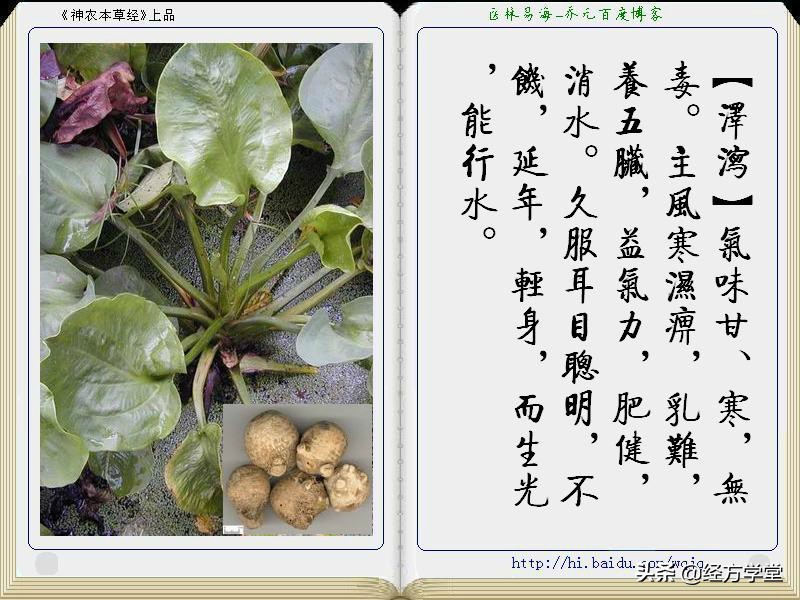 《神农本草经》上品
医林易海_乔元百度博客
【澤瀉】氣味甘、寒，無
毒。主風寒濕痹，乳難，
養五臟，益氣力，肥健，
消水。久服耳目聰明，不
饑，延年，輕身，而生光
，能行水。
http://hi.baidu.com/
头条 @经方学堂